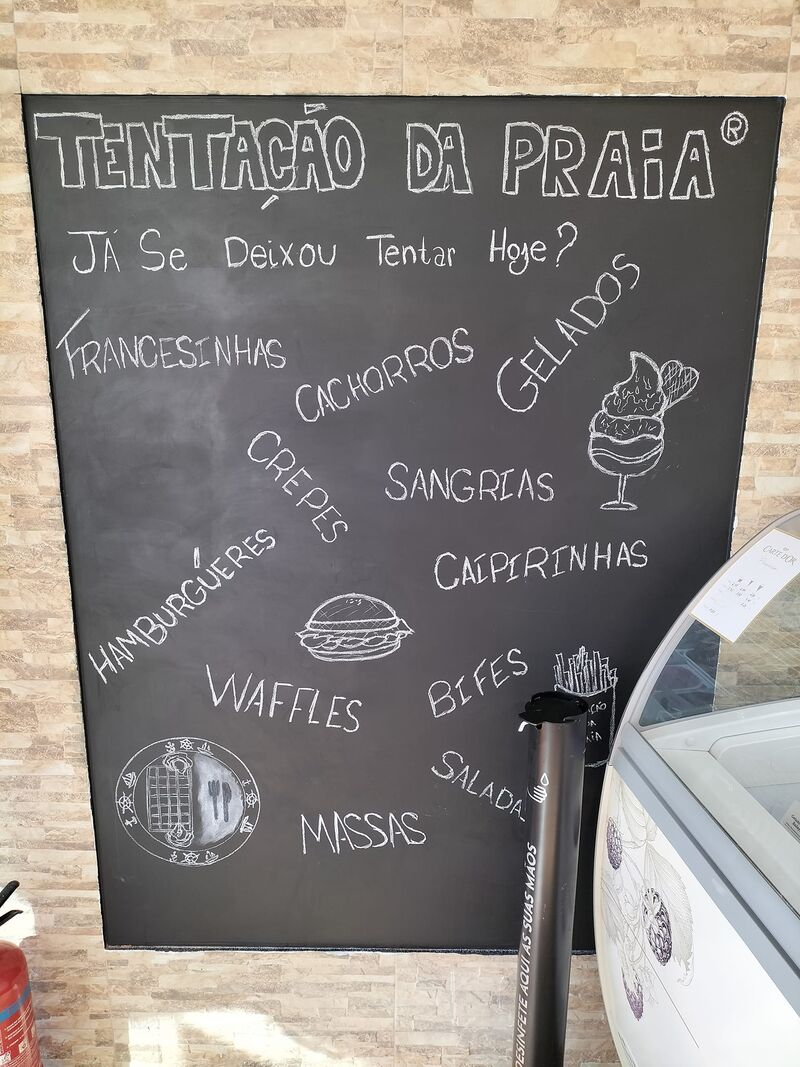 TENTAÇÃO DA PRAiA ®
JÁ Se DeixoU Tentar Hoje?
FRANCESINHAS
CACHORROS
GELADOS
CREPES
SANGRIAS
HAMBÚRGUERES
CAIPIRINHAS
WAFFLES
BIFES
SALADA
MASSAS
DESINFETE AQUI AS SUAS MÃOS
CARTE D'OR